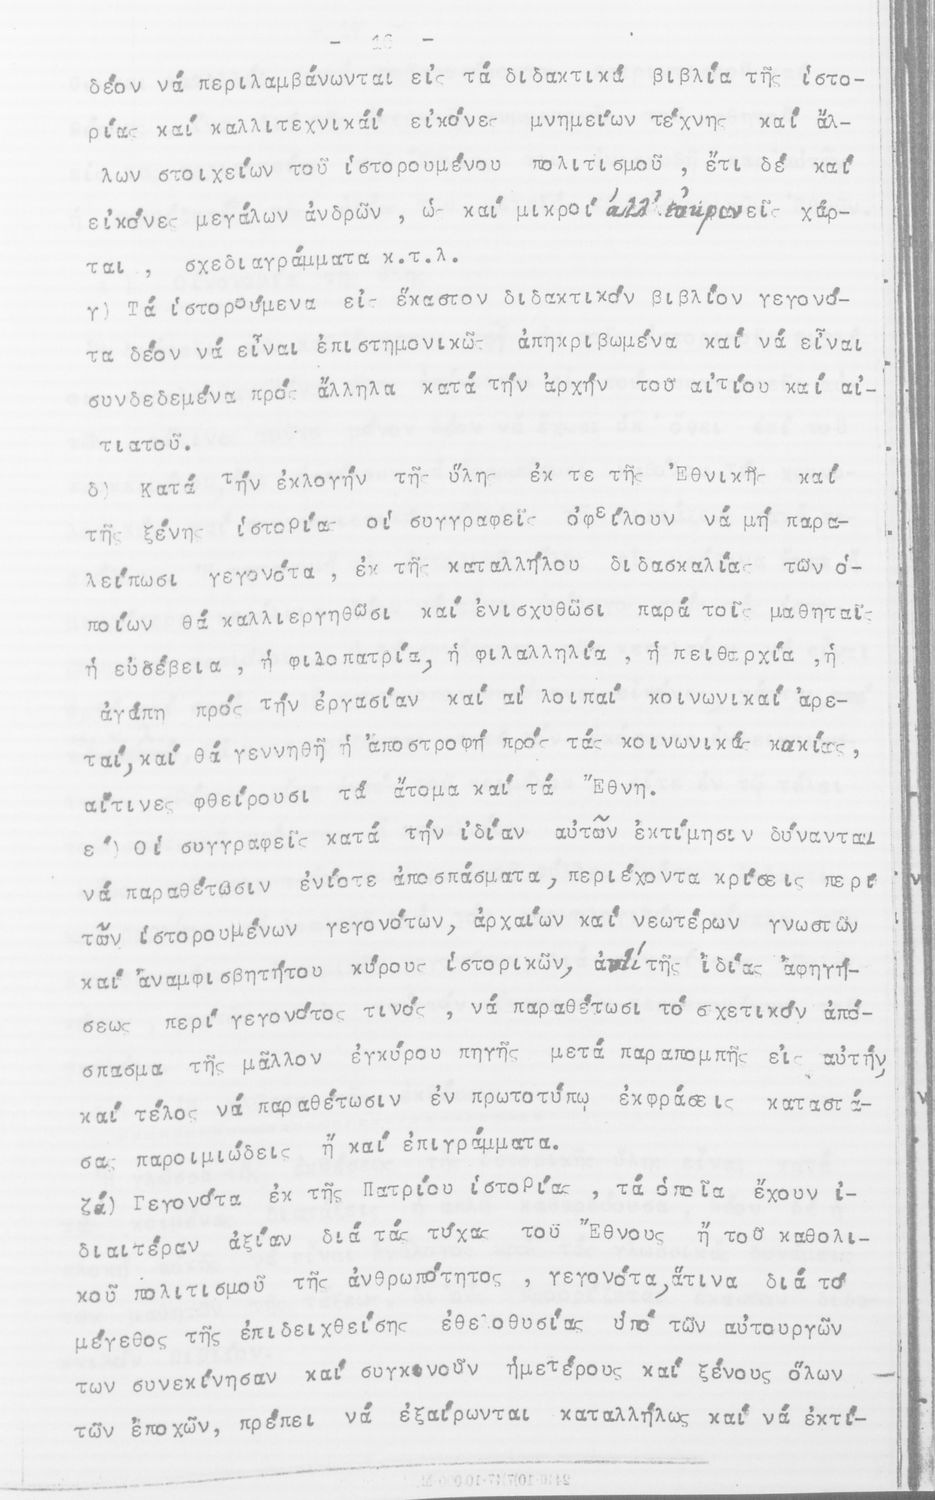 - 16 -
δέον νά περιλαμβάνωνται εἰς τά διδακτικά βιβλία τῆς ἱστο-
ρίας καί καλλιτεχνικάί εἰκόνες μνημείων τέχνης καί ἄλ-
λων στοιχείων τοῦ ἱστορουμένου πολιτισμοῦ , ἔτι δέ καί
εἰκόνες μεγάλων ἀνδρῶν , ὡς καί μικροί ἀλλ' εὐκρινεῖς χάρ-
ται , σχεδιαγράμματα κ.τ.λ.
γ) Τά ἱστορούμενα εἰς ἕκαστον διδακτικόν βιβλίον γεγονό-
τα δέον νά εἶναι ἐπιστημονικῶς ἀπηκριβωμένα καί νά εἶναι
συνδεδεμένα πρός ἄλληλα κατά τήν ἀρχήν τοῦ αἰτίου καί αἰ-
τιατοῦ.
δ) Κατά τήν ἐκλογήν τῆς ὕλης ἐκ τε τῆς Ἐθνικῆς καί
τῆς ξένης ἱστορίας οἱ συγγραφεῖς ὀφείλουν νά μή παρα-
λείπωσι γεγονότα , ἐκ τῆς καταλλήλου διδασκαλίας τῶν ὁ-
ποίων θά καλλιεργηθῶσι καί ἐνισχυθῶσι παρά τοῖς μαθηταῖς
ἡ εὐσέβεια , ἡ φιλοπατρία, ἡ φιλαλληλία , ἡ πειθαρχία ,ἡ
ἀγάπη πρός τήν ἐργασίαν καί αἱ λοιπαί κοινωνικαί ἀρε-
ταί, καί θά γεννηθῇ ἡ ἀποστροφή πρός τάς κοινωνικάς κακίας ,
αἵτινες φθείρουσι τά ἄτομα καί τά Ἔθνη.
ε΄) Οἱ συγγραφεῖς κατά τήν ἰδίαν αὐτῶν ἐκτίμησιν δύνανται
νά παραθέτωσιν ἐνίοτε ἀποσπάσματα, περιέχοντα κρίσεις περί
τῶν ἱστορουμένων γεγονότων, ἀρχαίων καί νεωτέρων γνωστῶν
καί ἀναμφισβητήτου κύρους ἱστορικῶν, ἀντί τῆς ἰδίας ἀφηγή-
σεως περί γεγονότος τινός , νά παραθέτωσι τό σχετικόν ἀπό-
σπασμα τῆς μᾶλλον ἐγκύρου πηγῆς μετά παραπομπῆς εἰς αὐτήν,
καί τέλος νά παραθέτωσιν ἐν πρωτοτύπῳ ἐκφράσεις καταστά-
σας παροιμιώδεις ἤ καί ἐπιγράμματα.
ζά) Γεγονότα ἐκ τῆς Πατρίου ἱστορίας , τά ὁποῖα ἔχουν ἰ-
διαιτέραν ἀξίαν διά τάς τύχας τοῦ Ἔθνους ἤ τοῦ καθολι-
κοῦ πολιτισμοῦ τῆς ἀνθρωπότητος , γεγονότα,ἅτινα διά τό
μέγεθος τῆς ἐπιδειχθείσης ἐθελοθυσίας ὑπό τῶν αὐτουργῶν
των συνεκίνησαν καί συγκινοῦν ἡμετέρους καί ξένους ὅλων
τῶν ἐποχῶν, πρέπει νά ἐξαίρωνται καταλλήλως καί νά ἐκτί-